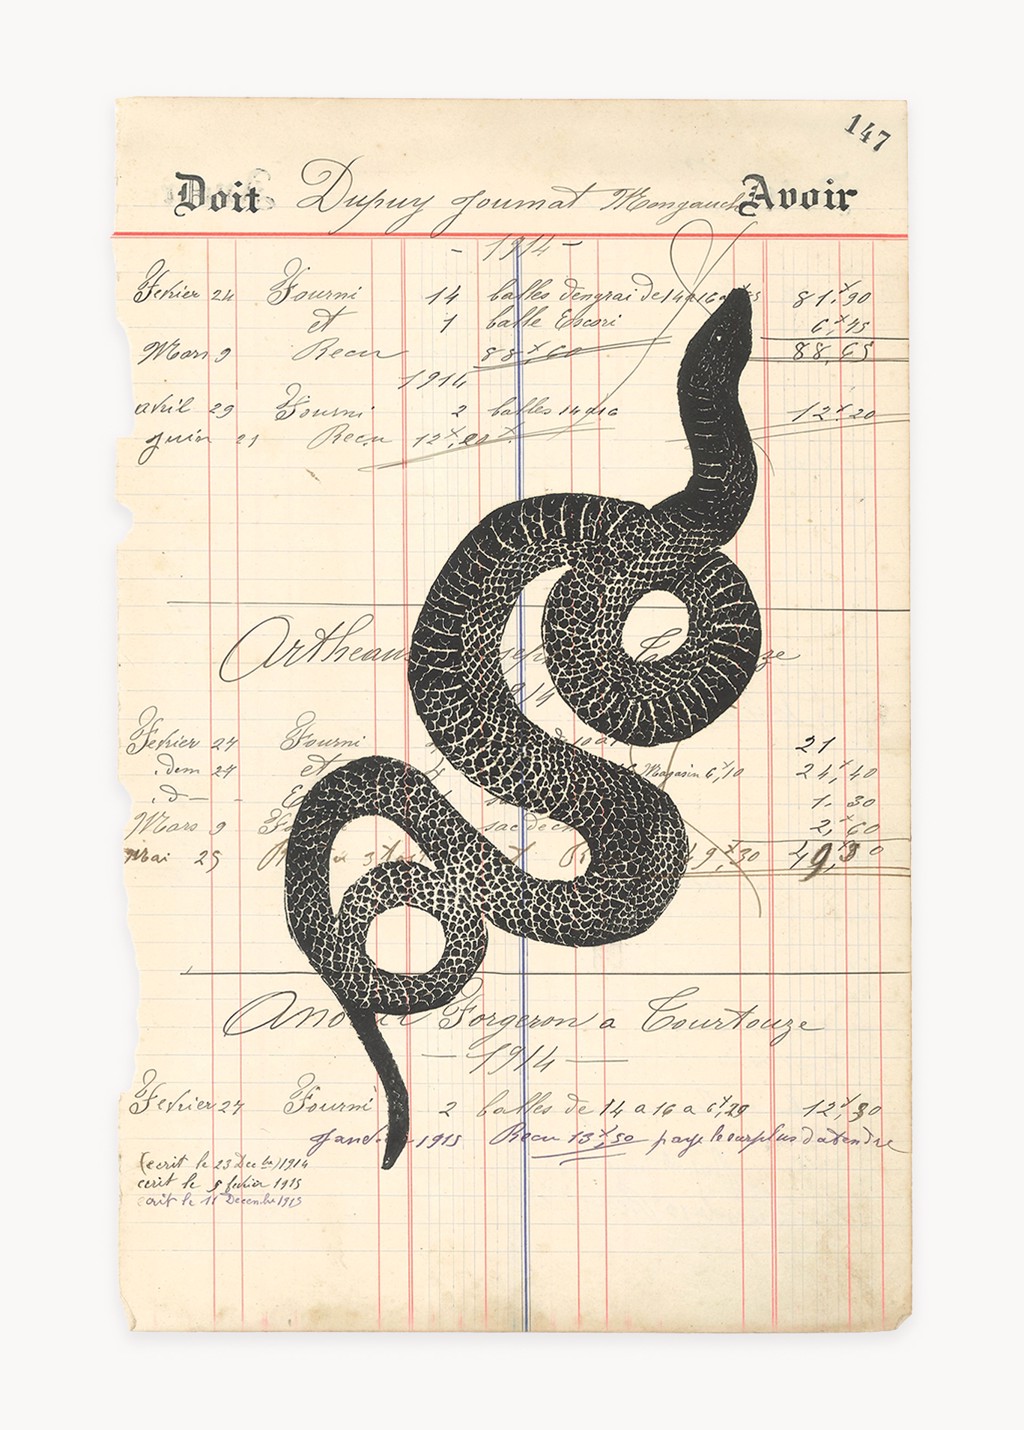 147
Doit Dupuy Journat Avoir
- 1914 -
Fevrier 24 Fourni 14 balles dengrai de 14 a 16 81,90
et 1 balle Escori 6,75
Mars 9 Recu 88,60 88,65
1914
avril 29 Fourni 2 balles 14 a 16 12,20
Juin 21 Recu 12,20
Artheau
Fevrier 24 Fourni 21
idem 24 et Magasin 6,10 24,40
id - 1.30
Mars 9 sac de 2,60
Mai 25 49,30 49,30
Forgeron a Courtouze
- 1914 -
Fevrier 24 Fourni 2 balles de 14 a 16 a 6,20 12,30
1915 Recu 13,50 paye le surplus
(ecrit le 23 Decbre) 1914
ecrit le 5 fevrier 1915
ecrit le 11 Decembre 1915